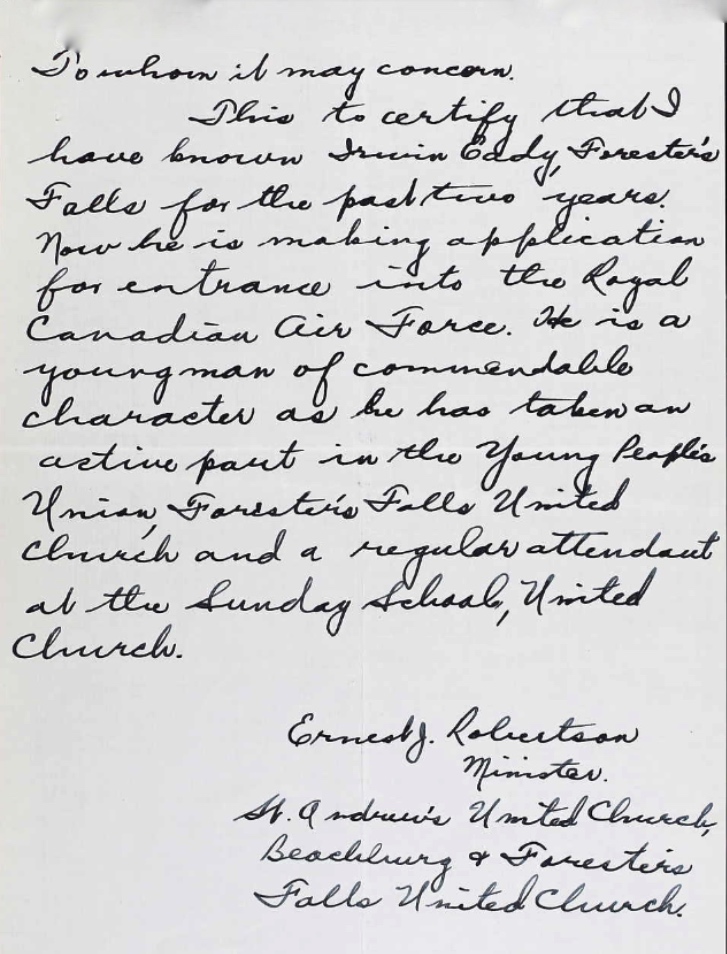 To whom it may concern.
This to certify that I
have known Irwin Eady, Forester's
Falls for the past two years.
Now he is making application
for entrance into the Royal
Canadian Air Force. He is a
young man of commendable
character as he has taken an
active part in the Young People's
Union, Forester's Falls United
Church and a regular attendant
at the Sunday School, United
Church.
Ernest J. Robertson
Minister.
St. Andrew's United Church,
Beachburg & Forester's
Falls United Church.